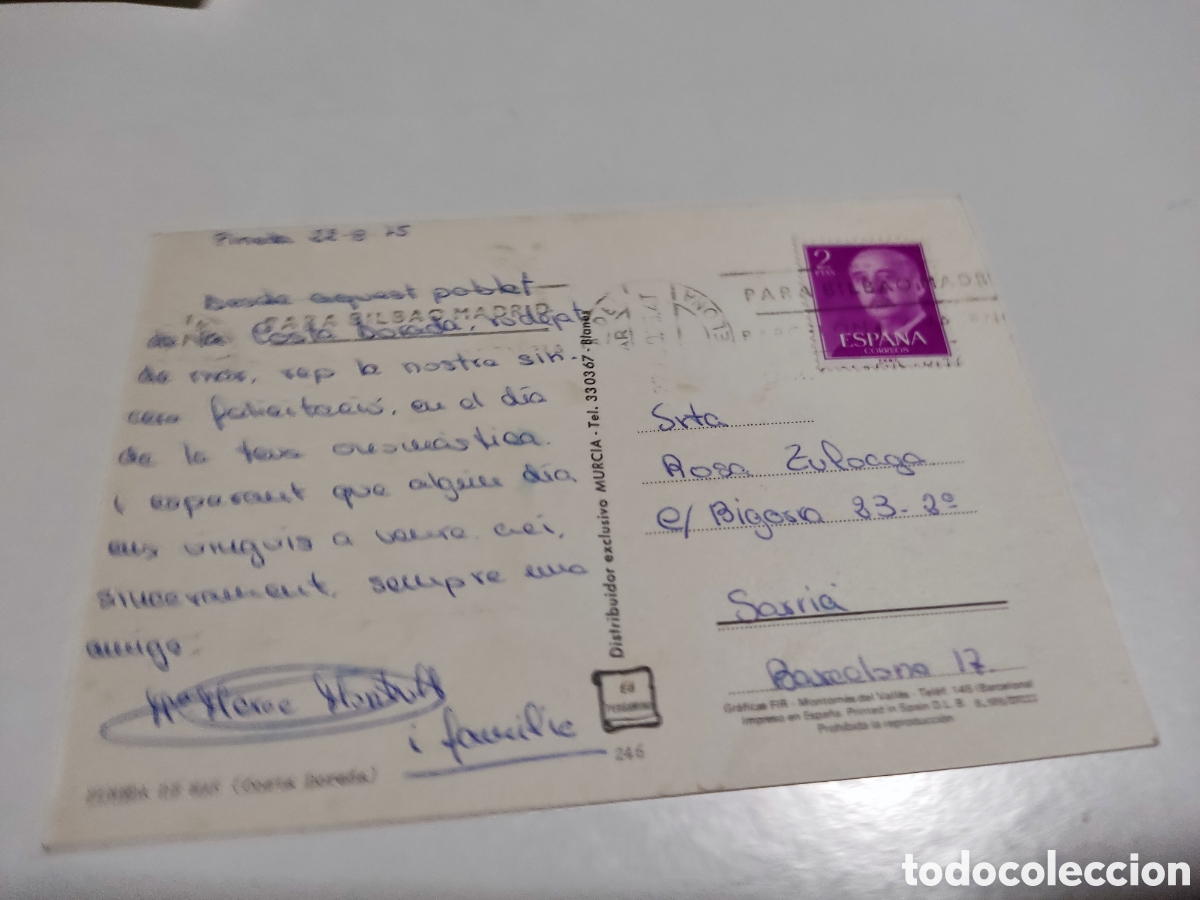 Pineda 22-8-75
Desde aquest poblet
de la Costa Dorada, rodejat
de mar, rep la nostra sin-
cera felicitació, en el día
de la teva onomástica.
i esperant que algún día
ens vinguis a veure aquí,
sincerament, sempre una
amiga.
Mª Merce
i familia
PINEDA DE MAR (Costa Dorada)
246
PARA BILBAO, MADRID
Distribuidor exclusivo MURCIA - Tel. 330367 - Blanes
PARA BILBAO, MADRI
2
PTAS
ESPAÑA
CORREOS
Srta
Rosa Zuloaga
c/ Bigora 23-2º
Sarriá
Barcelona 17
Gráficas FIR - Montornés del Vallés - Teléf. 146 (Barcelona)
Impreso en España. Printed in Spain D.L. B.
Prohibida la reproducción
todocoleccion